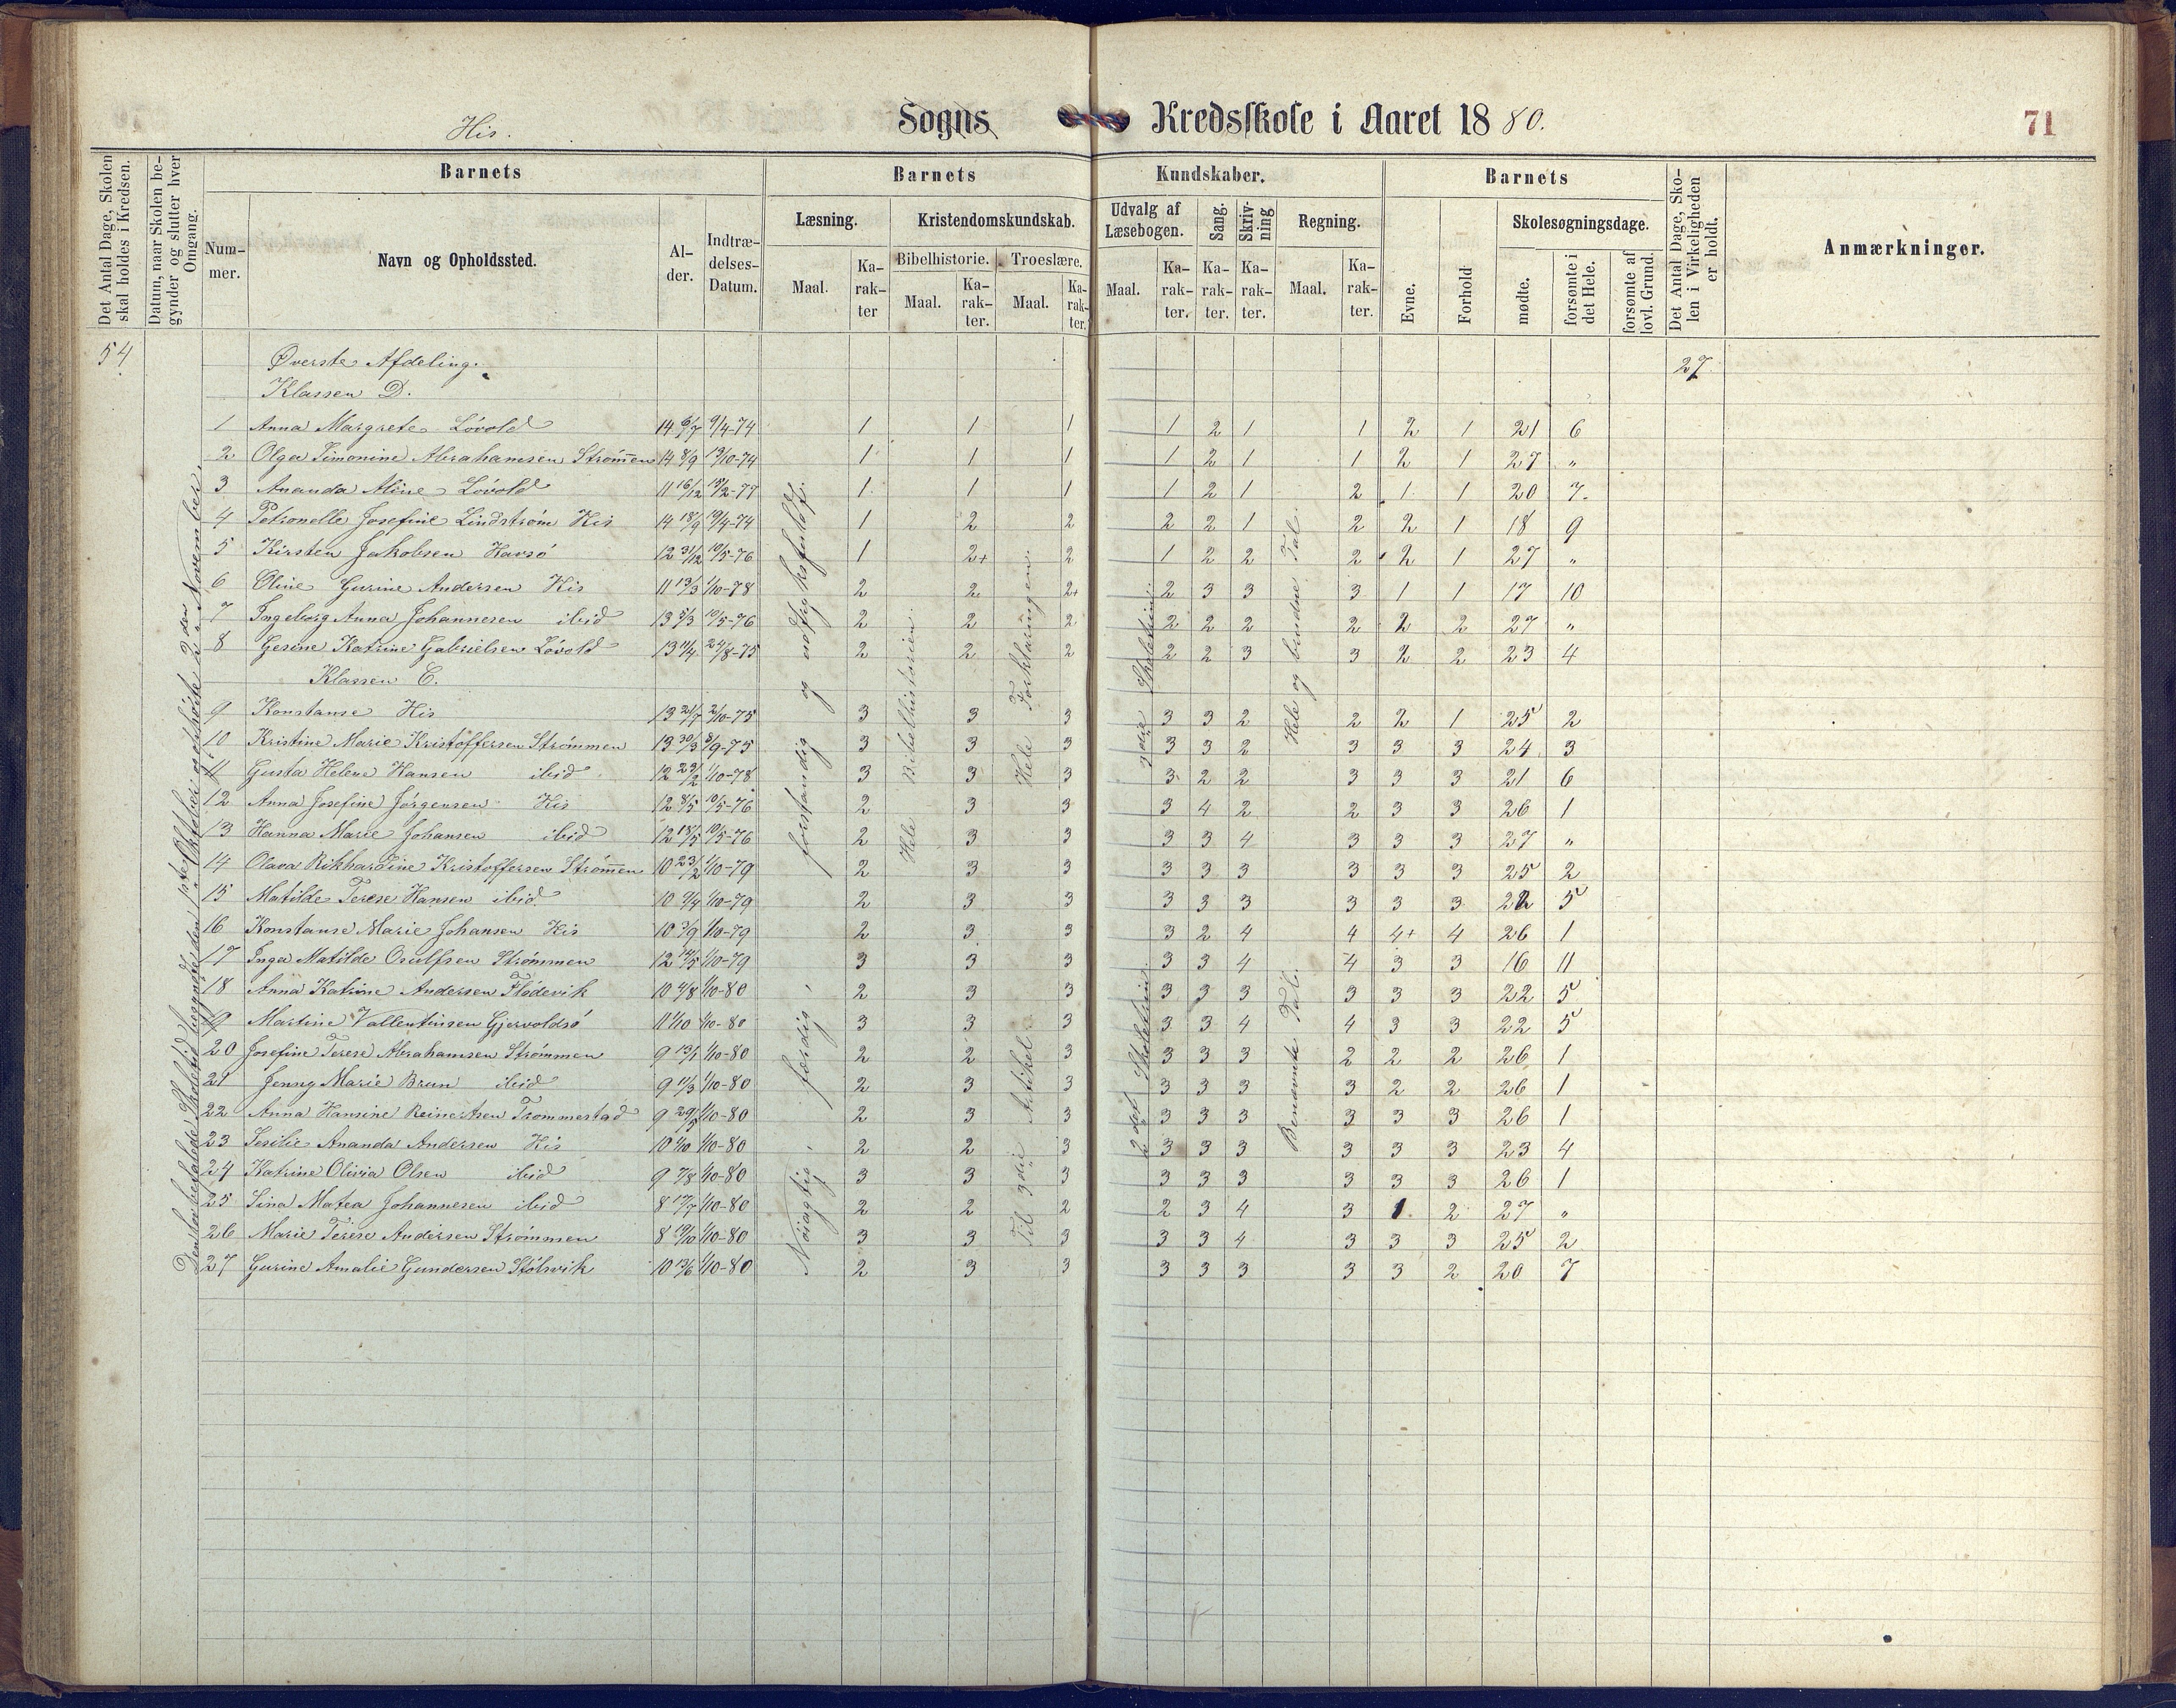 His. Sogns Kredsskole i Aaret 1880. 71
Det Antal Dage, Skolen skal holdes i Kredsen.
Datum, naar Skolen begynder og slutter hver Omgang.
Barnets Barnets Kundskaber. Barnets
Det Antal Dage, Skolen i Virkeligheden er holdt.
Anmærkninger.
Nummer. Navn og Opholdssted. Alder. Indtrædelses-Datum.
Læsning. Kristendomskundskab. Udvalg af Læsebogen. Sang. Skrivning Regning. Evne. Forhold Skolesøgningsdage.
Bibelhistorie. Troeslære.
Maal. Karakter Maal. Karakter. Maal. Karakter. Maal. Karakter. Karakter. Karakter. Maal. Karakter. mødte. forsømte i det Hele. forsømte af lovl. Grund.
54 Øverste Afdeling. 27
Klassen D.
1 Anna Margrete Lövold 14 6/7 9/4-74 1 1 1 1 2 1 1 2 1 21 6
2 Olga Simonine Abrahamsen Strömmen 14 8/9 13/10-74 1 1 1 1 2 1 1 2 1 27 "
3 Ananda Aline Lövold 11 16/12 15/2-77 1 1 1 1 2 1 2 1 1 20 7
4 Petronelle Josefine Lindström His 14 18/9 19/4-74 1 2 2 2 2 1 2 2 1 18 9
5 Kirsten Jakobsen Havsö 12 31/12 10/5-76 1 2+ 2 1 2 2 2 2 1 27 "
6 Oline Gurine Andersen His 11 13/3 1/10-78 2 2 2+ 2 3 3 3 1 1 17 10
7 Ingeborg Anna Johannesen ibid 13 5/3 10/5-76 2 2 2 2 2 2 2 2 2 27 "
8 Gesine Katrine Gabrielsen Lövold 13 11/4 24/8-75 2 2 2 2 2 3 3 2 2 23 4
Klassen C.
9 Konstanse His 13 21/7 2/10-75 3 3 3 3 3 2 2 2 1 25 2
10 Kristine Marie Kristoffersen Strömmen 13 30/3 8/9-75 3 3 3 3 3 2 3 3 3 24 3
11 Gusta Helene Hansen ibid 12 23/2 1/10-78 3 3 3 3 2 2 3 3 3 21 6
12 Anna Josefine Jörgensen His 12 8/5 10/5-76 2 3 3 3 4 2 2 3 3 26 1
13 Hanna Marie Johansen ibid 12 18/5 10/5-76 2 3 3 3 3 4 3 3 3 27 "
14 Olava Rikhardine Kristoffersen Strömmen 10 23/2 1/10-79 2 3 3 3 3 3 3 3 3 25 2
15 Matilde Terese Hansen ibid. 10 9/4 1/10-79 2 3 3 3 3 3 3 3 3 22 5
16 Konstanse Marie Johansen His 10 3/9 1/10-79 2 3 3 3 2 4 4 4+ 4 26 1
17 Inga Matilde Osulfsen Strömmen 12 14/5 1/10-79 3 3 3 3 3 4 4 3 3 16 11
18 Anna Katrine Andersen Flödevik 10 4/8 1/10-80 2 3 3 3 3 3 3 3 3 22 5
19 Martine Vallentinsen Gjervoldsö 11 1/10 1/10-80 3 3 3 3 3 4 4 3 3 22 5
20 Josefine Terese Abrahamsen Strömmen 9 13/1 1/10-80 2 2 3 3 3 3 2 2 2 26 1
21 Jenny Marie Brun ibid 9 11/3 1/10-80 2 3 3 3 3 3 3 2 2 26 1
22 Anna Hansine Reinertsen Trommestad 9 29/5 1/10-80 2 3 3 3 3 3 3 3 3 26 1
23 Sesilie Ananda Andersen His 10 1/10 1/10-80 2 2 3 3 3 3 3 3 3 23 4
24 Katrine Olivia Olsen ibid 9 7/8 1/10-80 3 3 3 3 3 3 3 3 3 26 1
25 Sina Matea Johannesen ibid 8 17/7 1/10-80 2 2 2 2 3 4 3 1 2 27 "
26 Marie Terese Andersen Strömmen 8 19/10 1/10-80 3 3 3 3 3 4 3 3 3 25 2
27 Gurine Amalie Gundersen Stölsvik 10 13/6 1/10-80 2 3 3 3 3 3 3 3 2 20 7
Den lovbefalede Skoletid begyndte den 1ste Oktober og ophörte 2den November.
Nöiagtig, færdig, forstandig og
Hele Bibelhistorien.
Til 3die Artikel
Hele Forklaringen.
2det Skoletrin.
3die Skoletrin.
Benævnte Tal.
Hele og brudne Tal.